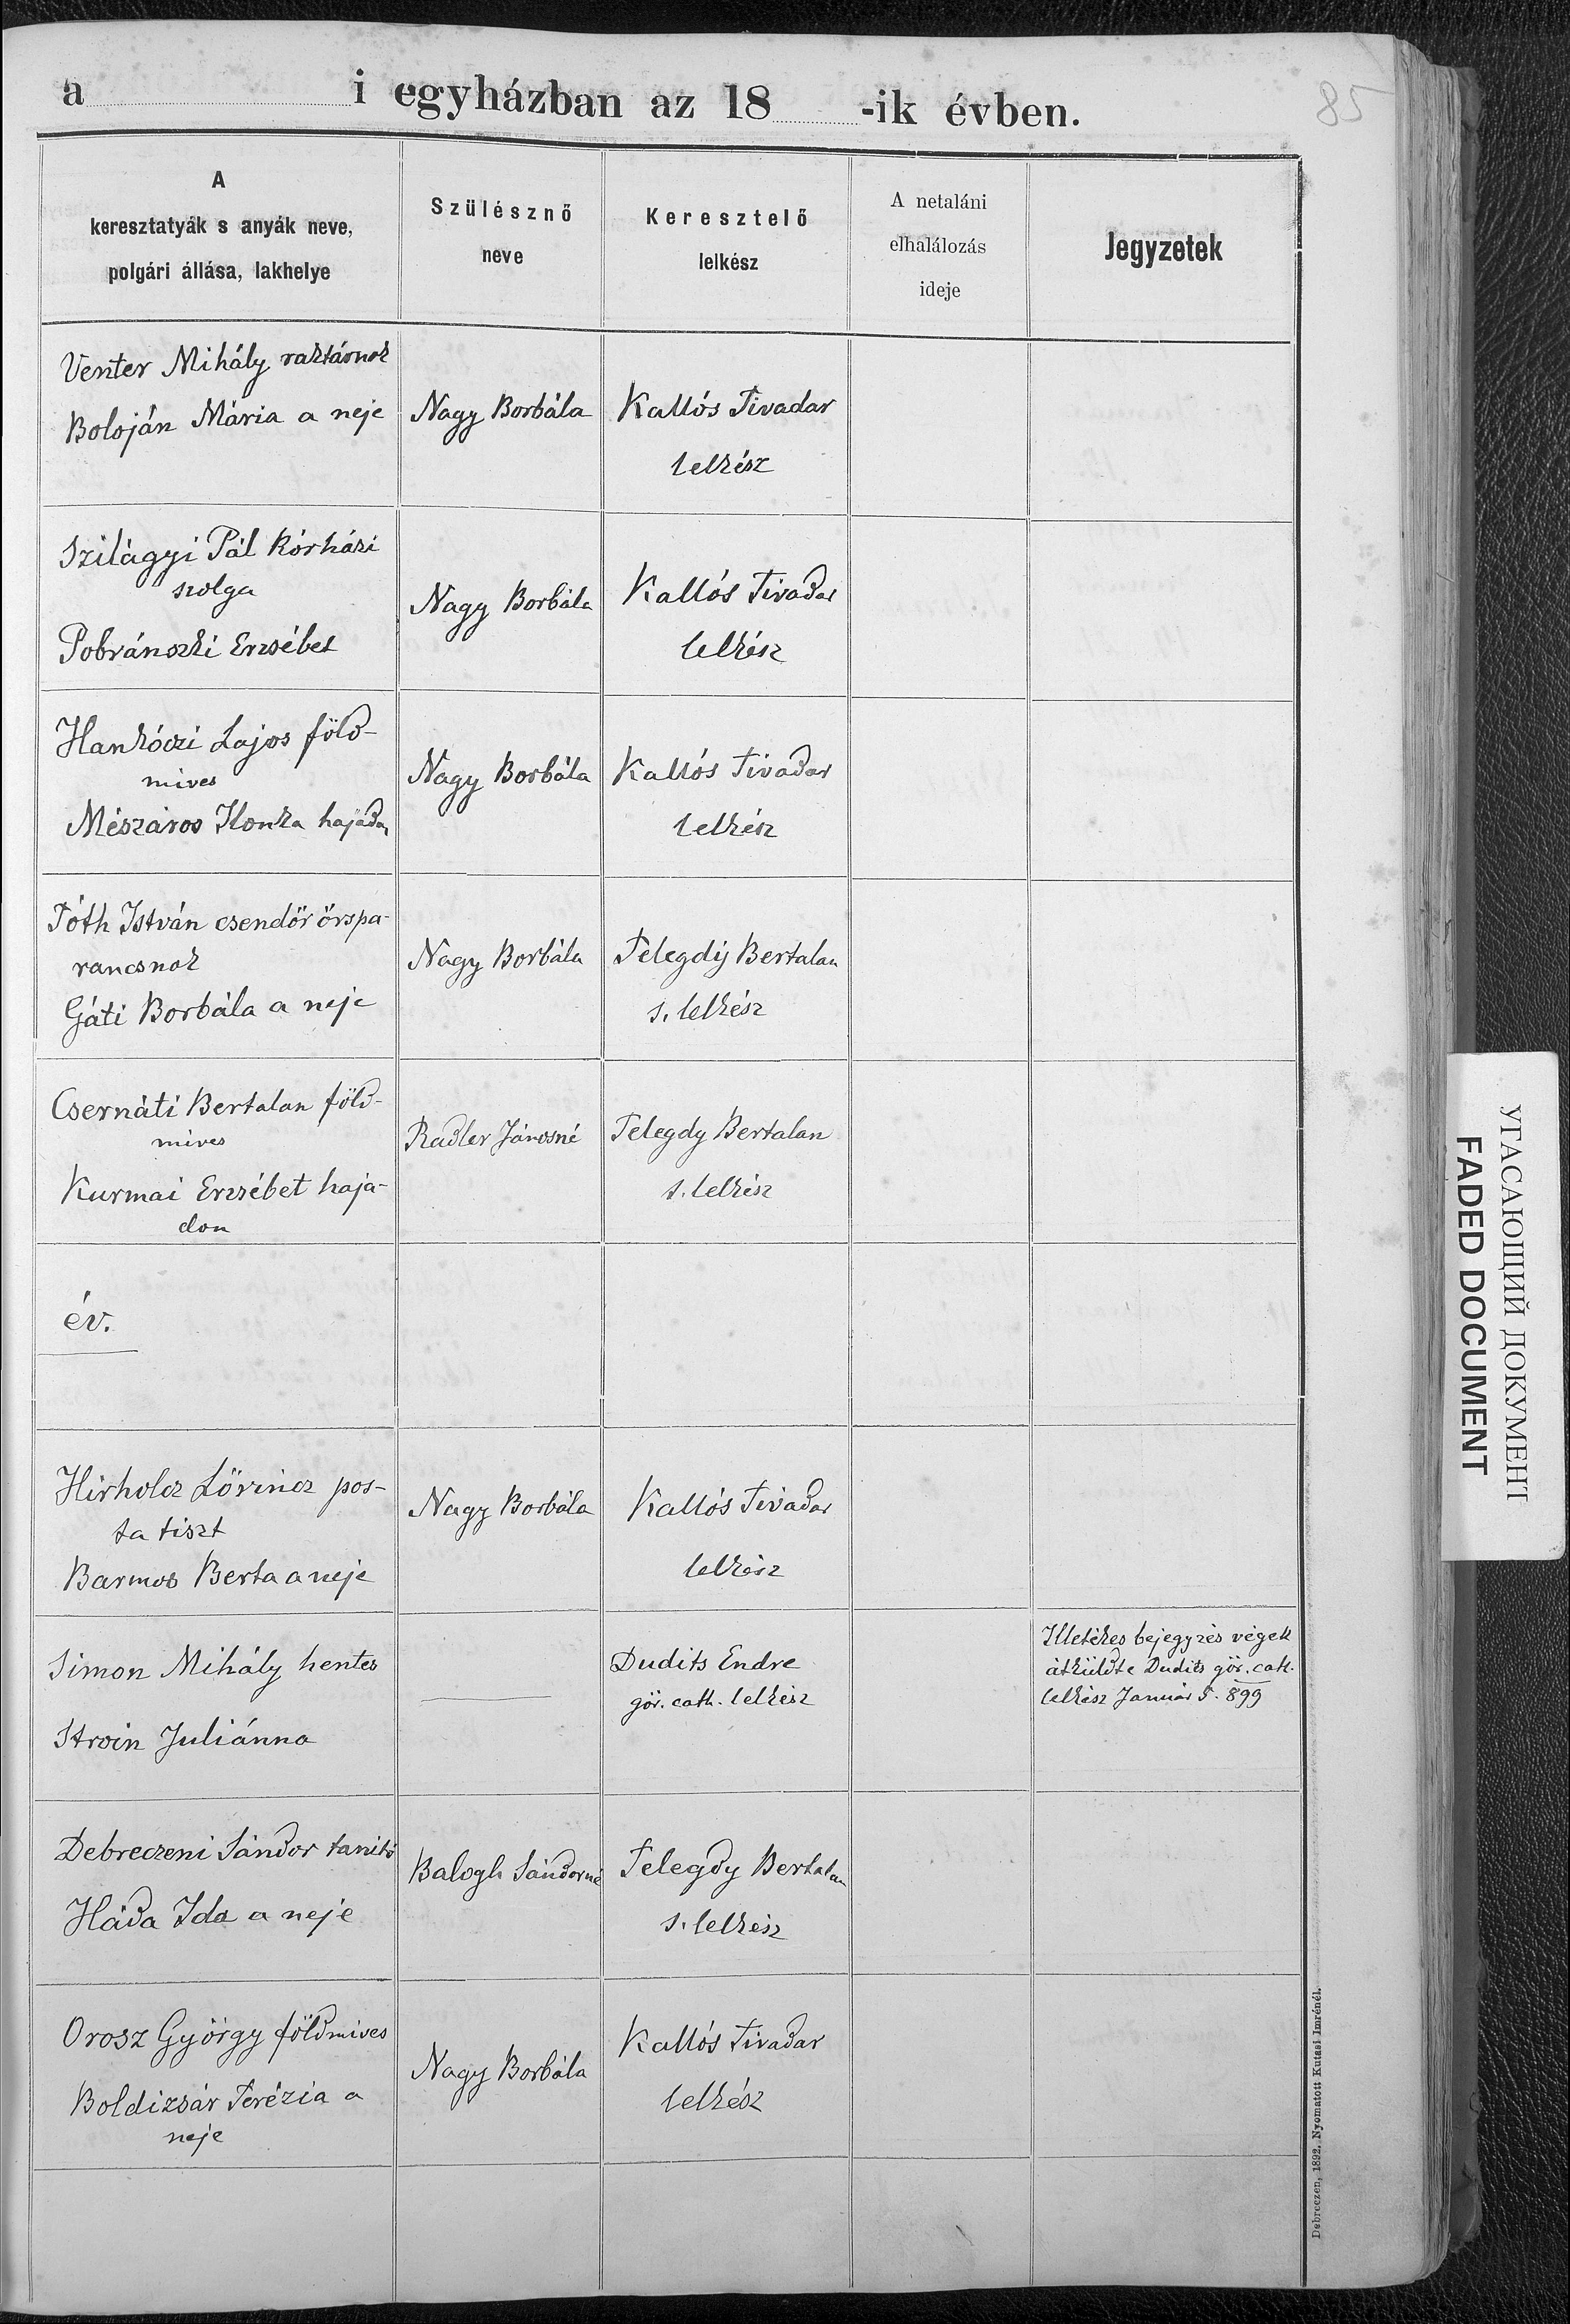 a i egyházban az 18 -ik évben.
85
A
keresztatyák s anyák neve,
polgári állása, lakhelye
Szülésznő
neve
Keresztelő
lelkész
A netaláni
elhalálozás
ideje
Jegyzetek
Venter Mihály raktárnok
Boloján Mária a neje
Nagy Borbála
Kallós Tivadar
lelkész
Szilágyi Pál kórházi
szolga
Pobránszki Erzsébet
Nagy Borbála
Kallós Tivadar
lelkész
Hankóczi Lajos föld-
mives
Mészáros Ilonka hajadon
Nagy Borbála
Kallós Tivadar
lelkész
Tóth István csendőr őrspa-
rancsnok
Gáti Borbála a neje
Nagy Borbála
Telegdy Bertalan
s. lelkész
Csernáti Bertalan föld-
mives
Kurmai Erzsébet haja-
don
Radler Jánosné
Telegdy Bertalan
s. lelkész
év.
Hirholcz Lőrincz pos-
ta tiszt
Barmos Berta a neje
Nagy Borbála
Kallós Tivadar
lelkész
Simon Mihály hentes
Stroin Juliánna
Dudits Endre
gör. cath. lelkész
Illetékes bejegyzés végett
átküldte Dudits gör. cath.
lelkész Január 5. 899
Debreczeni Sándor tanító
Háda Ida a neje
Balogh Sándorné
Telegdy Bertalan
s. lelkész
Orosz György földmives
Boldizsár Terézia a
neje
Nagy Borbála
Kallós Tivadar
lelkész
Debreczen, 1892. Nyomatott Kutasi Imrénél.
УГАСАЮЩИЙ ДОКУМЕНТ
FADED DOCUMENT